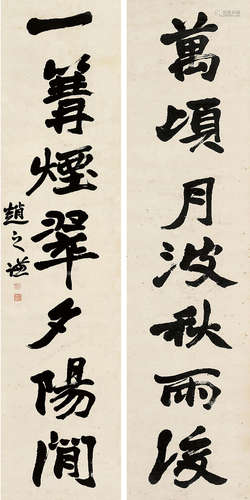 萬頃月波秋雨後
一篝煙翠夕陽間
趙之謙